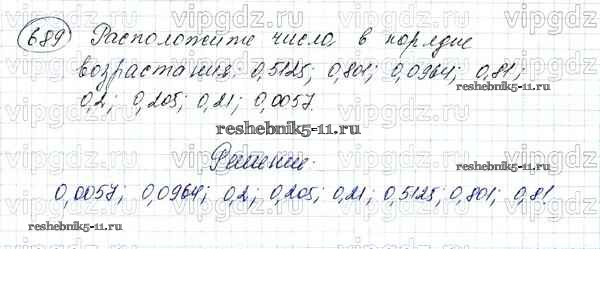 vipgdz.ru vipgdz.ru vipgdz.ru vipgdz.ru
689 Расположите числа в порядке
возрастания: 0,5125; 0,801; 0,0964; 0,81;
0,2; 0,205; 0,21; 0,0057.
reshebnik5-11.ru
reshebnik5-11.ru
Решение.
reshebnik5-11.ru
0,0057; 0,0964; 0,2; 0,205; 0,21; 0,5125; 0,801; 0,81
reshebnik5-11.ru
reshebnik5-11.ru